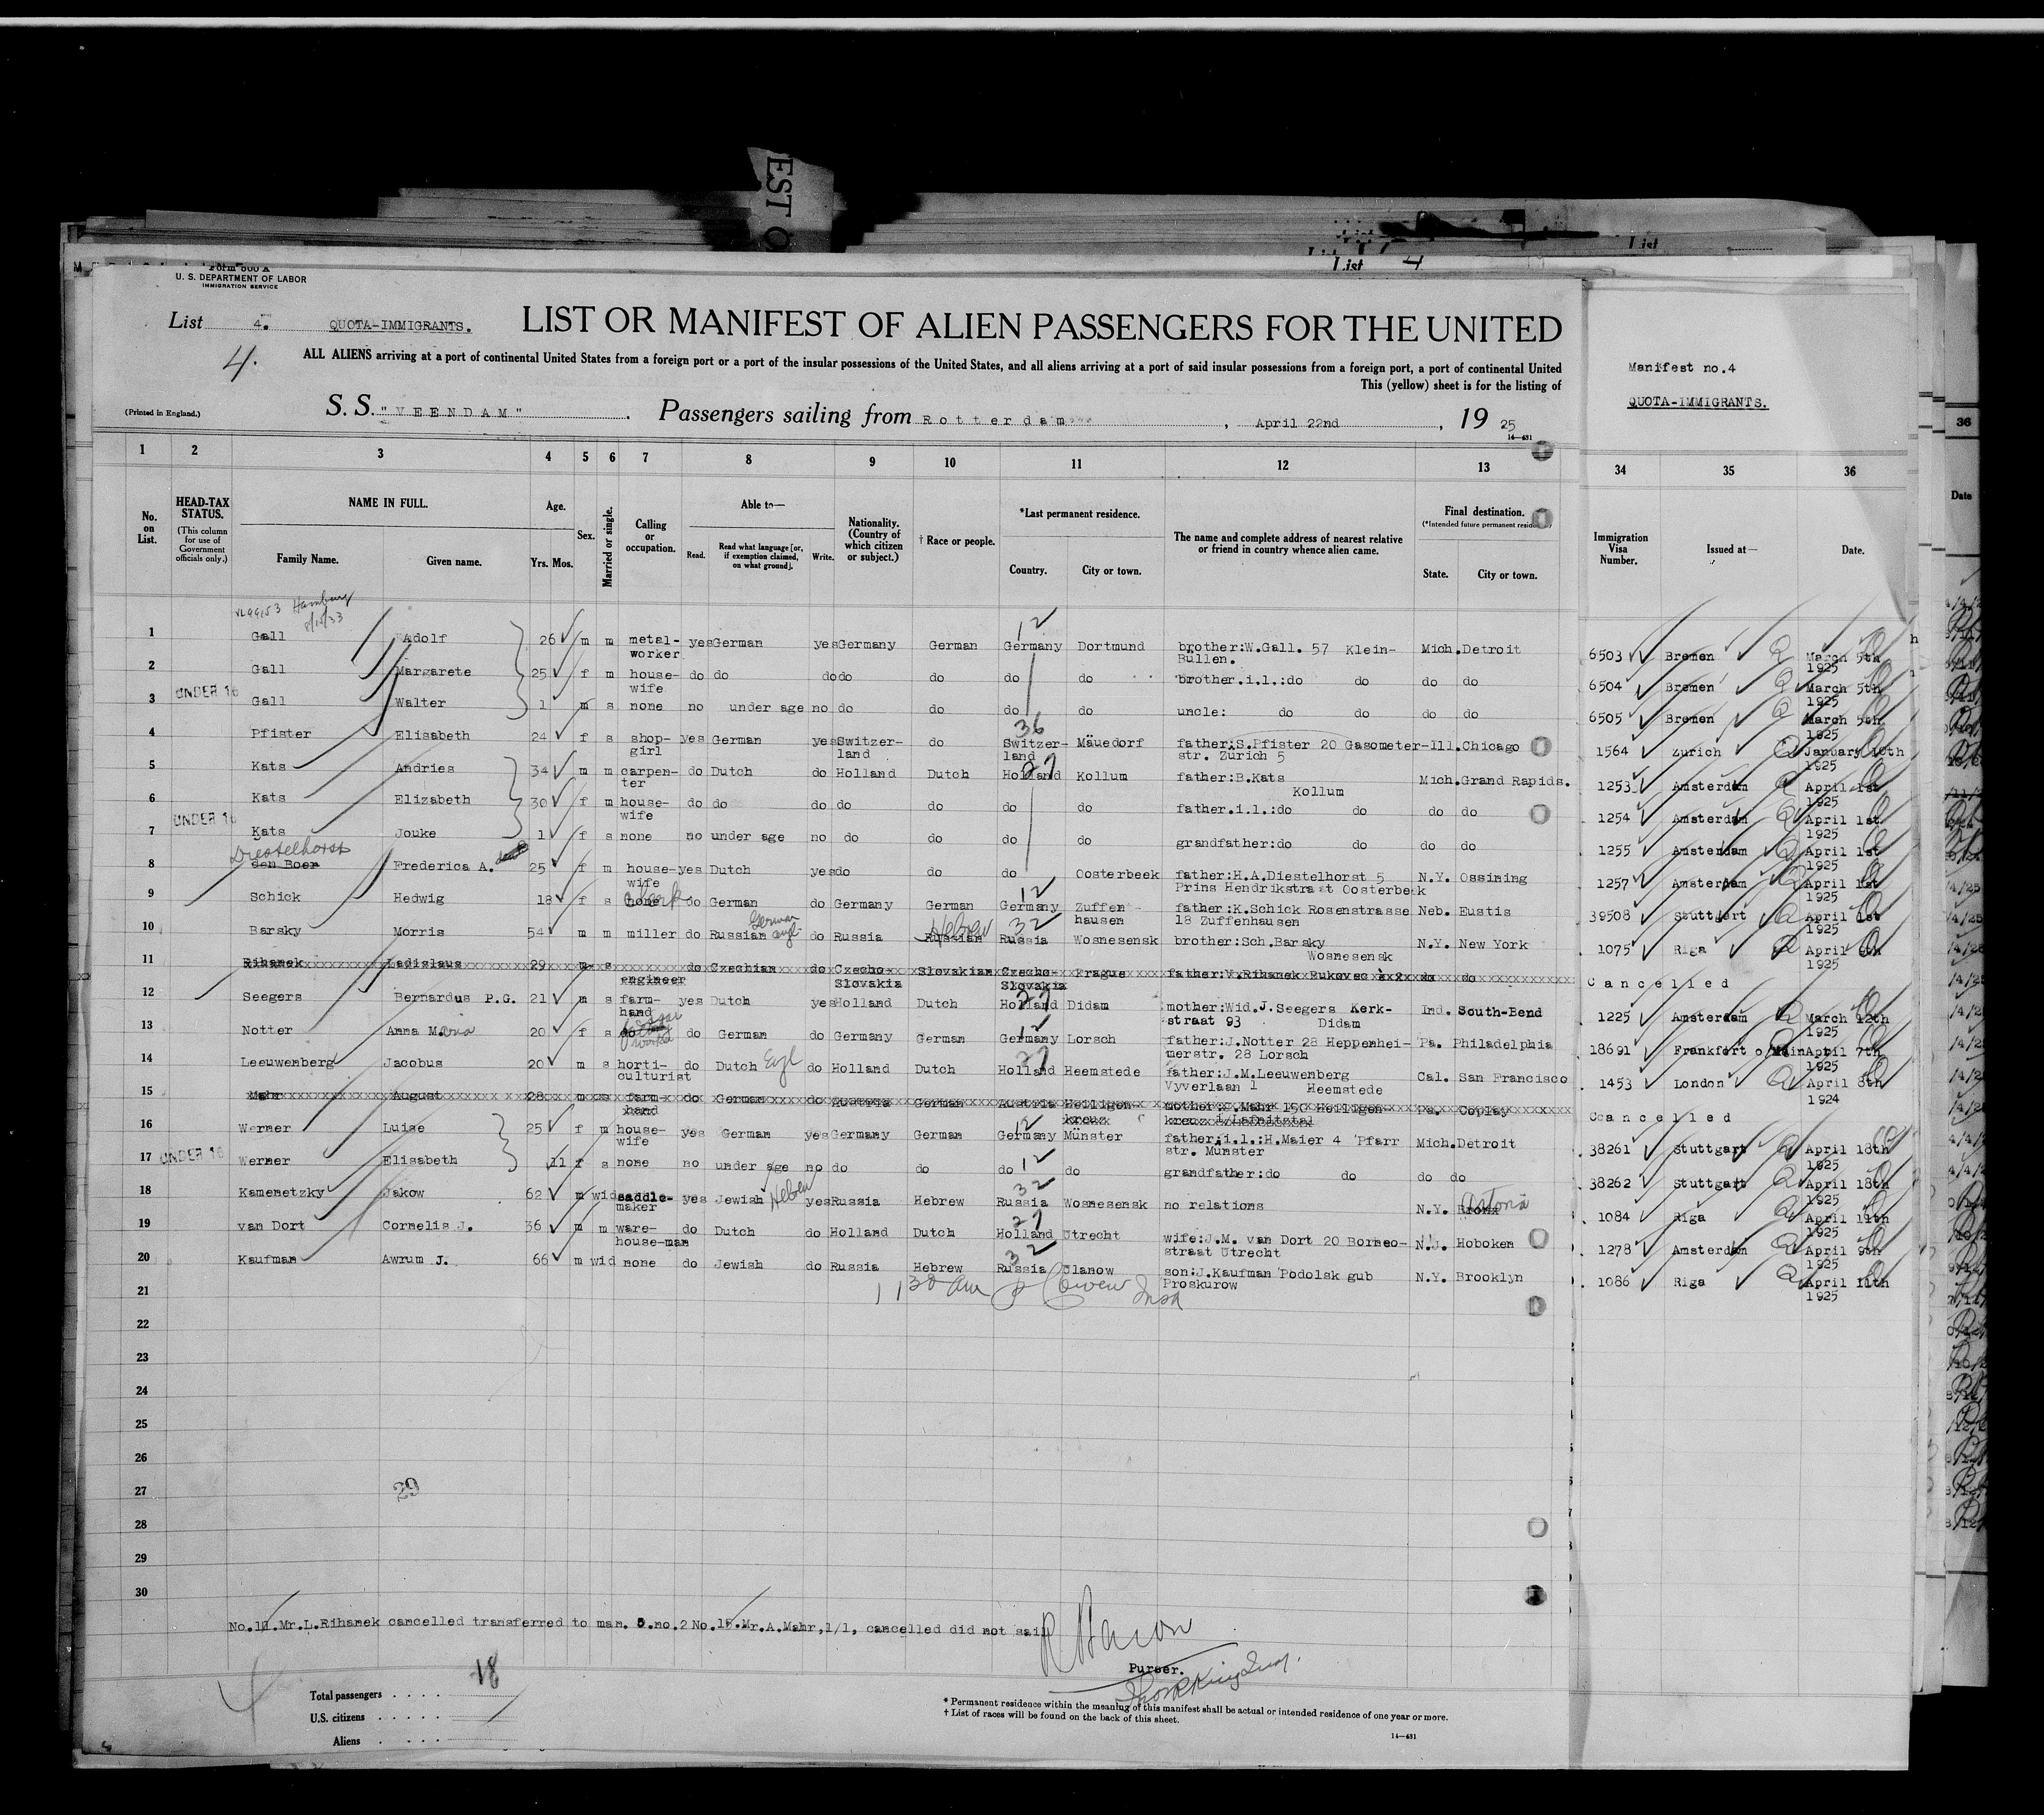 EST O
List
List 4
Form 500 A
U. S. DEPARTMENT OF LABOR
IMMIGRATION SERVICE
List 4. QUOTA-IMMIGRANTS. LIST OR MANIFEST OF ALIEN PASSENGERS FOR THE UNITED
4.
ALL ALIENS arriving at a port of continental United States from a foreign port or a port of the insular possessions of the United States, and all aliens arriving at a port of said insular possessions from a foreign port, a port of continental United
This (yellow) sheet is for the listing of
(Printed in England.) S. S. "VEENDAM" Passengers sailing from Rotterdam, April 22nd, 19 25
14—431
Manifest no.4
QUOTA-IMMIGRANTS.
1 2 3 4 5 6 7 8 9 10 11 12 13 34 35 36
No. on List. HEAD-TAX STATUS. (This column for use of Government officials only.) NAME IN FULL. Family Name. Given name. Age. Yrs. Mos. Sex. Married or single. Calling or occupation. Able to— Read. Read what language [or, if exemption claimed, on what ground]. Write. Nationality. (Country of which citizen or subject.) † Race or people. *Last permanent residence. Country. City or town. The name and complete address of nearest relative or friend in country whence alien came. Final destination. (*Intended future permanent residence) State. City or town. Immigration Visa Number. Issued at— Date.
Hamburg
8/15/33
12
1 Gall Adolf 26 m m metal-worker yes German yes Germany German Germany Dortmund brother:W.Gall. 57 Klein-Büllen. Mich. Detroit 6503 Bremen March 5th 1925
2 Gall Margarete 25 f m house-wife do do do do do do do brother.i.l.:do do do do 6504 Bremen March 5th 1925
UNDER 16
3 Gall Walter 1 m s none no under age no do do do do uncle: do do do do 6505 Bremen March 5th 1925
36
4 Pfister Elisabeth 24 f s shop-girl yes German yes Switzer-land do Switzer-land Mäuedorf father:S.Pfister 20 Gasometer-str. Zürich 5 Ill. Chicago 1564 Zürich January 10th 1925
27
5 Kats Andries 34 m m carpen-ter do Dutch do Holland Dutch Holland Kollum father:B.Kats Kollum Mich. Grand Rapids. 1253 Amsterdam April 1st 1925
6 Kats Elizabeth 30 f m house-wife do do do do do do do father.i.l.:do do do do 1254 Amsterdam April 1st 1925
UNDER 16
7 Kats Jouke 1 f s none no under age no do do do do grandfather:do do do do 1255 Amsterdam April 1st 1925
Diestelhorst
8 den Boer Frederica A. 25 f m house-wife yes Dutch yes do do do Oosterbeek father:H.A.Diestelhorst 5 Prins Hendrikstraat Oosterbeek N.Y. Ossining 1257 Amsterdam April 1st 1925
12
9 Schick Hedwig 18 f s none do German do Germany German Germany Zuffenhausen father:K.Schick Rosenstrasse 18 Zuffenhausen Neb. Eustis 39508 Stuttgart April 1st 1925
German Hebrew 32
10 Barsky Morris 54 m m miller do Russian do Russia Russian Russia Wosnesensk brother:Sch.Barsky Wosnesensk N.Y. New York 1075 Riga April 6th 1925
11 Rihanek Ladislaus 29 m s engineer do Czechian do Czecho-Slovakia Slovakian Czecho-Slovakia Prague father:V.Rihanek Bukovec do do Cancelled
27
12 Seegers Bernardus P.G. 21 m s farm-hand yes Dutch yes Holland Dutch Holland Didam mother:Wid.J.Seegers Kerk-straat 93 Didam Ind. South-Bend 1225 Amsterdam March 12th 1925
12
13 Notter Anna Maria 20 f s do do German do Germany German Germany Lorsch father:J.Notter 28 Heppenhei-merstr. 28 Lorsch Pa. Philadelphia 18691 Frankfort o/Main April 7th 1925
27
14 Leeuwenberg Jacobus 20 m s horti-culturist do Dutch Engl do Holland Dutch Holland Heemstede father:J.M.Leeuwenberg Vyverlaan 1 Heemstede Cal. San Francisco 1453 London April 8th 1924
15 Mahr August 28 m s farm-hand do German do Austria German Austria Heiligen-kreuz mother: Mahr 150 Heiligen-kreuz i/Lafnitztal Pa. Coplay Cancelled
12
16 Werner Luise 25 f m house-wife yes German yes Germany German Germany Münster father.i.l.:H.Maier 4 Pfarr str. Münster Mich. Detroit 38261 Stuttgart April 18th 1925
UNDER 16
17 Werner Elisabeth 11 f s none no under age no do do do 12 do grandfather:do do do do 38262 Stuttgart April 18th 1925
32
18 Kamenetzky Jakow 62 m wid saddle-maker yes Jewish Hebrew yes Russia Hebrew Russia Wosnesensk no relations N.Y. Bronx Astoria 1084 Riga April 11th 1925
27
19 van Dort Cornelis J. 36 m m ware-house-man do Dutch do Holland Dutch Holland Utrecht wife:J.M. van Dort 20 Borneo-straat Utrecht N.J. Hoboken 1278 Amsterdam April 9th 1925
32
20 Kaufman Awrum J. 66 m wid none do Jewish do Russia Hebrew Russia Ulanow son:J.Kaufman Podolsk gub Proskurow N.Y. Brooklyn 1086 Riga April 11th 1925
21
22
23
24
25
26
27
29
28
29
30
No.11.Mr.L.Rihanek cancelled transferred to man. 5.no.2 No.15.Mr.A.Mahr,1/1, cancelled did not sail
Purser.
18
Total passengers
U.S. citizens
Aliens
* Permanent residence within the meaning of this manifest shall be actual or intended residence of one year or more.
† List of races will be found on the back of this sheet.
14—431
36
Date